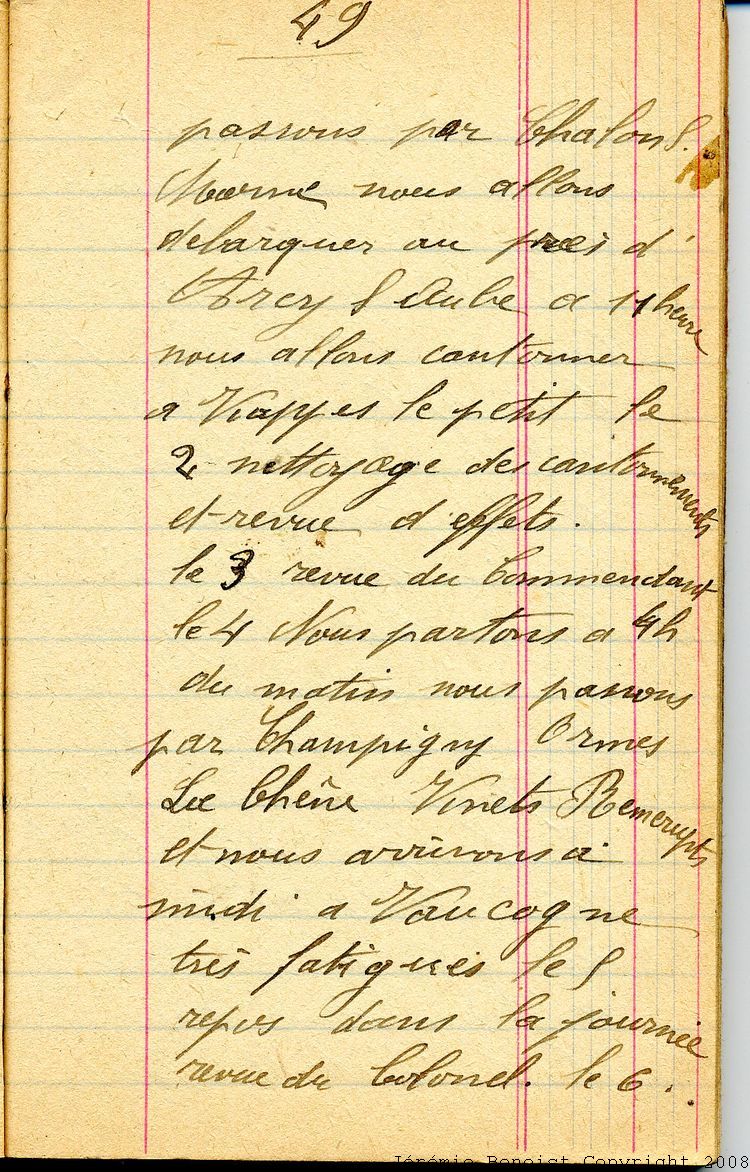 49
passons par Chalon S.
Marne nous allons
debarquer au près d'
Arcy S Aube a 11 heure
nous allons cantonner
a Viappes le petit le
2 nettoyage des cantonnements
et revue d effets.
le 3 revue du Commendant
le 4 Nous partons a 4h
du matin nous passons
par Champigny Ormes
Le Chêne Vinets Remerupts
et nous arrivons à
midi a Vaucogne
très fatigués le 5
repos dans la journée
revue du Colonel. le 6.
Jérémie Benoist Copyright 2008